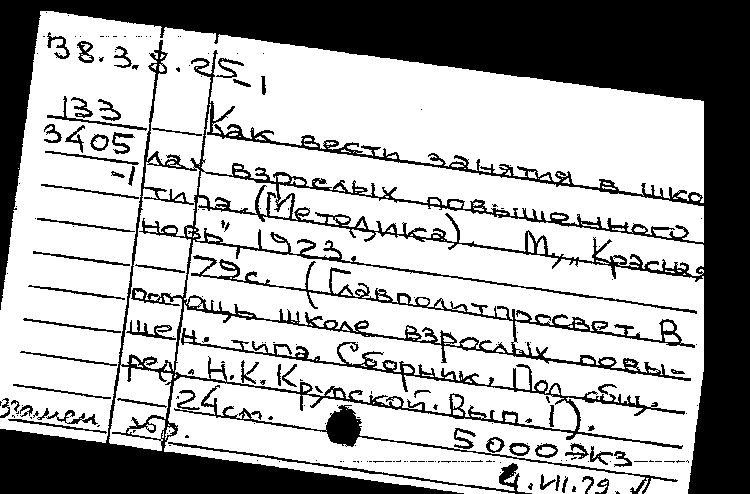 В8.3.8.25-1
133
3405
-1
Как вести занятия в шко
лах взрослых повышенного
типа. (Методика). М., „Красная
новь", 1923.
79с. (Главполитпросвет. В
помощь школе взрослых повы-
шен. типа. Сборник. Под общ.
ред. Н.К. Крупской. Вып. I).
24см.
5000 экз
взамен
4.VII.79.